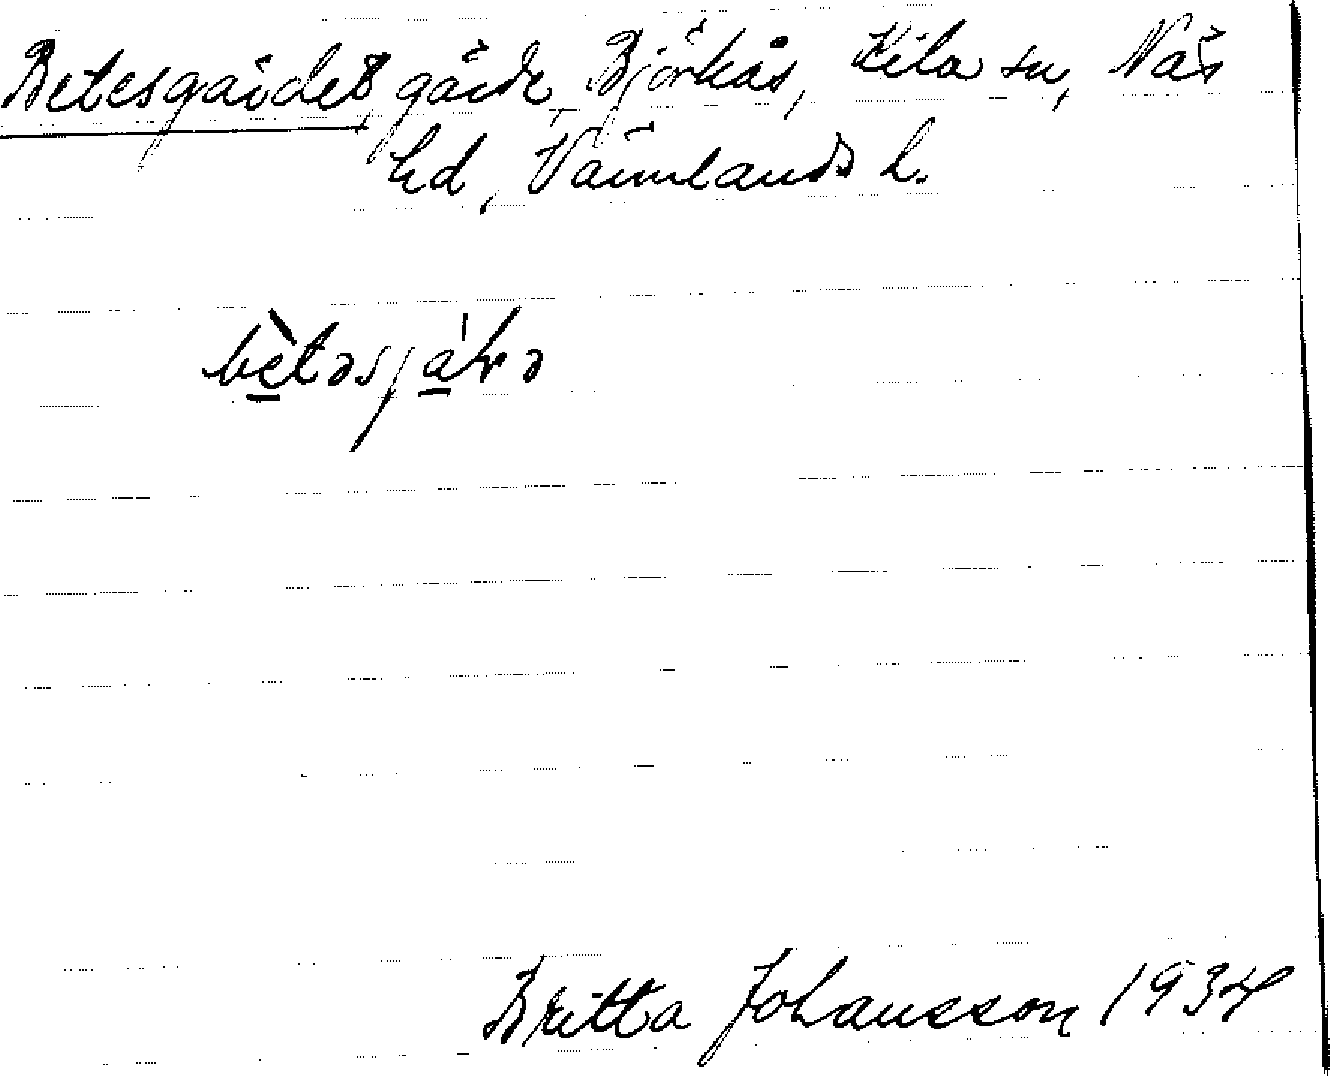 Betesgärdet, gärde, Björkås, Kila sn, Näs
hd, Värmlands l.
bètəsjàrə
Britta Johansson 1934